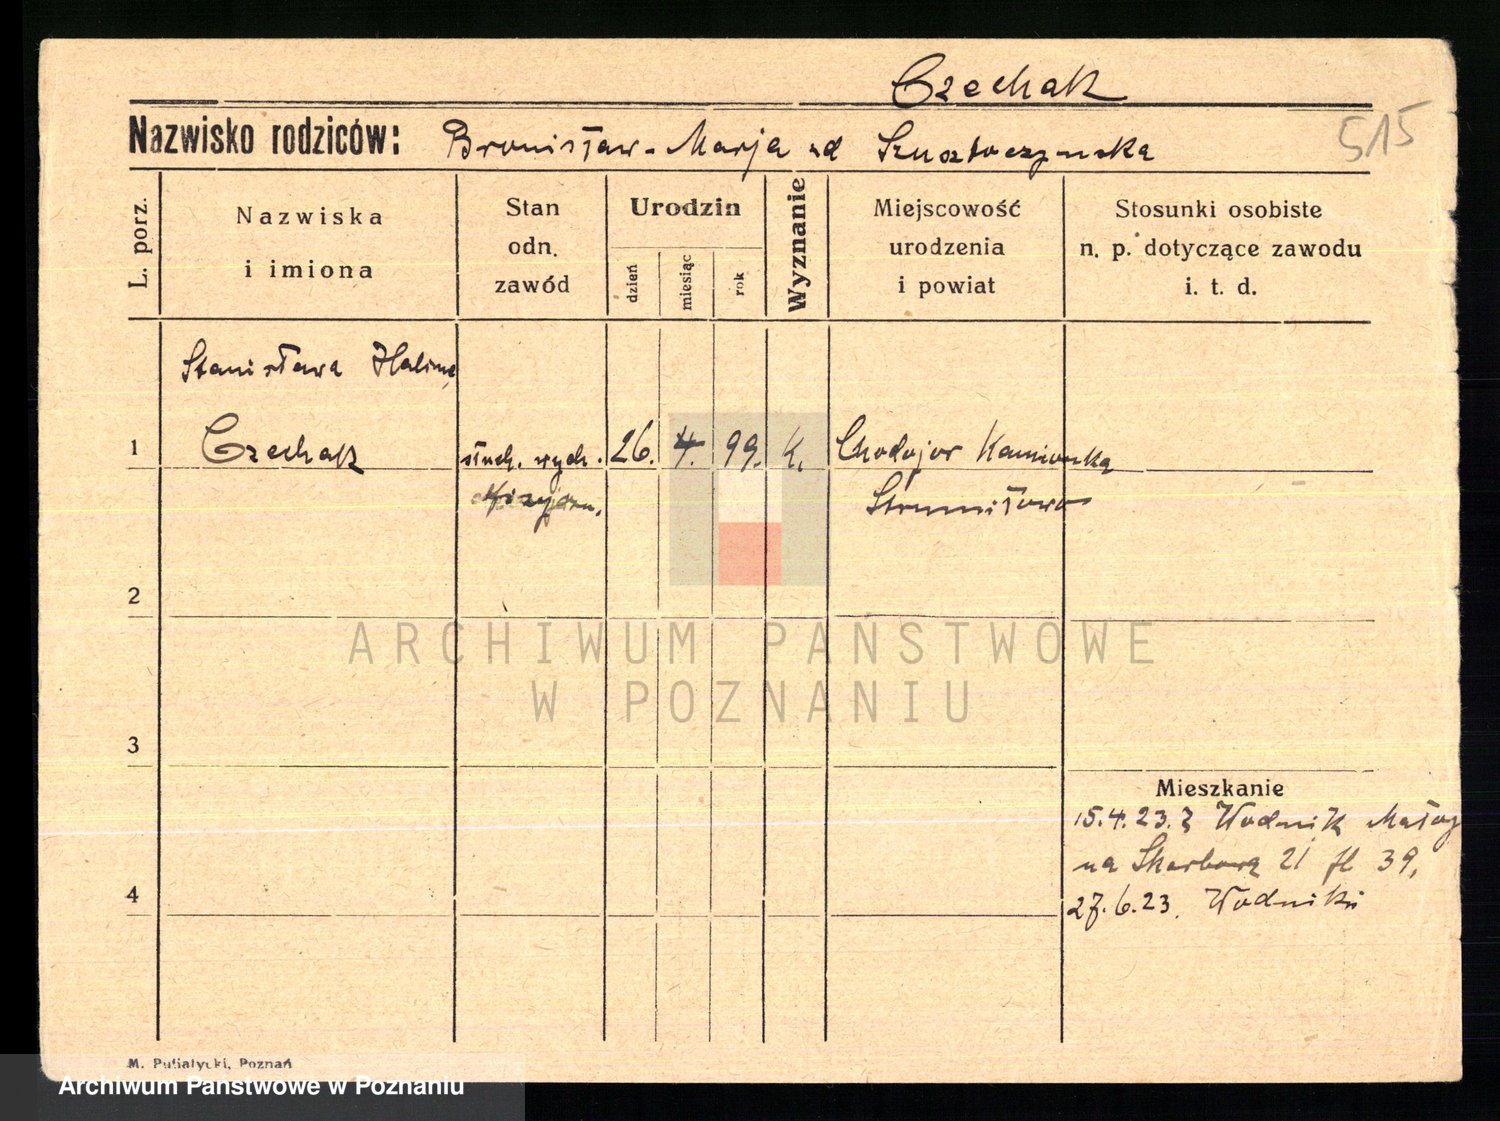 Czechak
Nazwisko rodziców: Bronisław - Marja zd
515
L. porz.
Nazwiska
i imiona
Stan
odn.
zawód
Urodzin
dzień
miesiąc
rok
Wyznanie
Miejscowość
urodzenia
i powiat
Stosunki osobiste
n. p. dotyczące zawodu
i. t. d.
Stanisława Halina
1 Czechak słuch. wych. 26. 4. 99. K. Kamionka
fizyczn. Strumiłowa
2
3
4
Mieszkanie
15.4.23. z Wodnik
na Skarbową 21 39,
27.6.23. Wodniki
ARCHIWUM PAŃSTWOWE
W POZNANIU
M. Putiatycki, Poznań
Archiwum Państwowe w Poznaniu